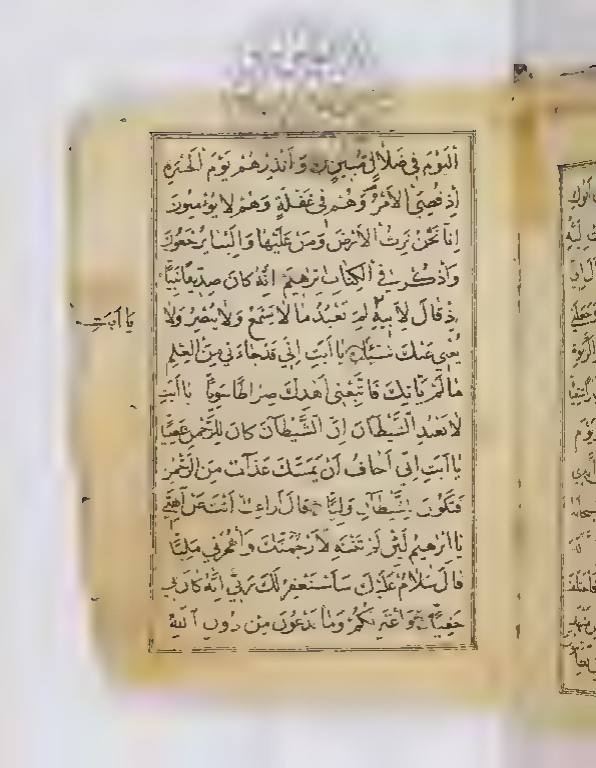 اَلْيَوْمَ فِي ضَلَالٍ مُبِينٍ وَأَنْذِرْهُمْ يَوْمَ الْحَسْرَةِ
إِذْ قُضِيَ الْأَمْرُ وَهُمْ فِي غَفْلَةٍ وَهُمْ لَا يُؤْمِنُونَ
إِنَّا نَحْنُ نَرِثُ الْأَرْضَ وَمَنْ عَلَيْهَا وَإِلَيْنَا يُرْجَعُونَ
وَاذْكُرْ فِي الْكِتَابِ إِبْرَهِيمَ إِنَّهُ كَانَ صِدِّيقًا نَبِيًّا
إِذْ قَالَ لِأَبِيهِ لِمَ تَعْبُدُ مَا لَا يَسْمَعُ وَلَا يُبْصِرُ وَلَا
يُغْنِي عَنْكَ شَيْئًا يَا أَبَتِ إِنِّي قَدْ جَاءَنِي مِنَ الْعِلْمِ
مَا لَمْ يَأْتِكَ فَاتَّبِعْنِي أَهْدِكَ صِرَاطًا سَوِيًّا يَا أَبَتِ
لَا تَعْبُدِ الشَّيْطَانَ إِنَّ الشَّيْطَانَ كَانَ لِلرَّحْمَنِ عَصِيًّا
يَا أَبَتِ إِنِّي أَخَافُ أَنْ يَمَسَّكَ عَذَابٌ مِنَ الرَّحْمَنِ
فَتَكُونَ لِلشَّيْطَانِ وَلِيًّا قَالَ أَرَاغِبٌ أَنْتَ عَنْ آلِهَتِي
يَا إِبْرَاهِيمُ لَئِنْ لَمْ تَنْتَهِ لَأَرْجُمَنَّكَ وَاهْجُرْنِي مَلِيًّا
قَالَ سَلَامٌ عَلَيْكَ سَأَسْتَغْفِرُ لَكَ رَبِّي إِنَّهُ كَانَ بِي
حَفِيًّا وَأَعْتَزِلُكُمْ وَمَا تَدْعُونَ مِنْ دُونِ اللَّهِ
يَا أَبَتِ